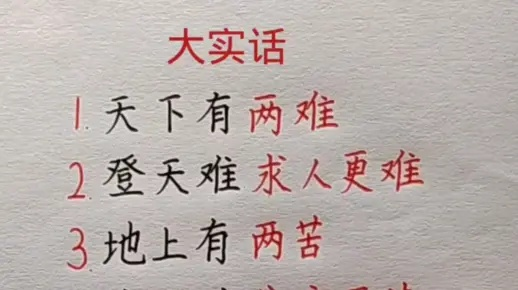 大实话
1. 天下有两难
2. 登天难求人更难
3. 地上有两苦